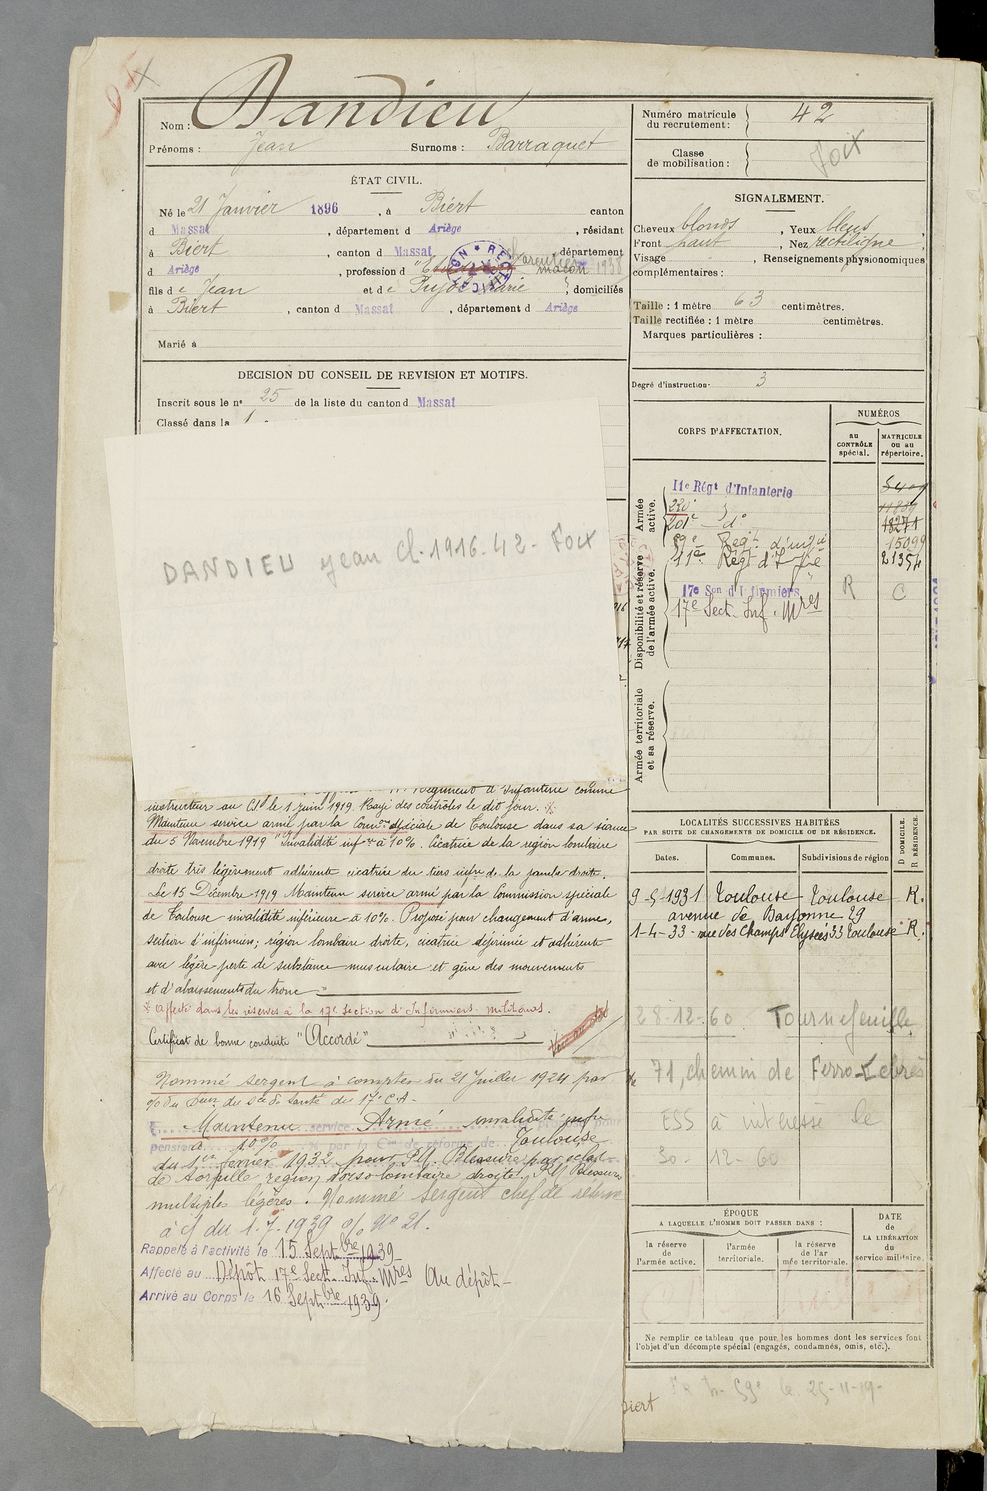 Nom : Dandieu
Prénoms : Jean Surnoms : Barraquet
ÉTAT CIVIL.
Né le 21 Janvier 1896, à Biert canton
d Massat, département d Ariège, résidant
à Biert, canton d Massat, département
d Ariège, profession d maçon 1938
fils de Jean et de Pujol Marie, domiciliés
à Biert, canton d Massat, département d Ariège
Marié à
DECISION DU CONSEIL DE REVISION ET MOTIFS.
Inscrit sous le n° 25 de la liste du canton d Massat
Classé dans la 1
DANDIEU Jean Cl. 1916. 42 - Foix
Régiment d'Infanterie comme
instructeur au C.I. le 1 Juin 1919. Rayé des contrôles le dit jour. ※
Maintenu service armé par la Comon spéciale de Toulouse dans sa séance
du 5 Novembre 1919 "Invalidité infre à 10%. Cicatrice de la région lombaire
droite très légèrement adhérente cicatrice du tiers infre de la jambe droite.
Le 15 Décembre 1919 Maintenu service armé par la Commission spéciale
de Toulouse invalidité inférieure à 10%. Proposé pour changement d'arme,
section d'infirmiers; région lombaire droite, cicatrice déprimée et adhérente
avec légère perte de substance musculaire et gêne des mouvements
et d'abaissements du tronc"
※ Affecté dans les réserves à la 17e Section d'Infirmiers militaires.
Certificat de bonne conduite "Accordé"
Nommé sergent à compter du 21 Juillet 1924 par
du Sce de Santé du 17e C.A.
Maintenu service Armé invalidité infre
à 10% par la Con de réforme de Toulouse
du 1er Février 1932 pour P.M. Blessure par éclat
de torpille région dorso lombaire droite. P.M. Blessures
multiples légères. Nommé sergent chef de réserve
à c/ du 1.7.1939 o/ No 21.
Rappelé à l'activité le 15 Septbre 1939
Affecté au Dépôt 17e Sect. Inf. Mres Au dépôt
Arrivé au Corps le 16 Septbre 1939.
Numéro matricule du recrutement : 42
Classe de mobilisation :
Foix
SIGNALEMENT.
Cheveux blonds, Yeux bleus
Front haut, Nez rectiligne
Visage, Renseignements physionomiques
complémentaires :
Taille : 1 mètre 63 centimètres.
Taille rectifiée : 1 mètre centimètres.
Marques particulières :
Degré d'instruction 3
CORPS D'AFFECTATION.
NUMÉROS
au CONTRÔLE spécial.
MATRICULE ou au répertoire.
Armée active.
11e Régt d'Infanterie
220e
201e do
59e Regt d'Infie 15099
11e Regt d'Infie 21354
Disponibilité et réserve de l'armée active.
17e Son d'Infirmiers R C
17e Sect. Inf. Mres
Armée territoriale et sa réserve.
LOCALITÉS SUCCESSIVES HABITÉES
PAR SUITE DE CHANGEMENTS DE DOMICILE OU DE RÉSIDENCE.
Dates. Communes. Subdivisions de région
D DOMICILE.
R RÉSIDENCE.
9-5-1931 Toulouse Toulouse R.
avenue de Bayonne 29
1-4-33 - rue des Champs Elysées 33 Toulouse R.
28-12-60 Tournefeuille
71, chemin de Ferro-Lebrès
ESS à intéressé le
30-12-60
ÉPOQUE
A LAQUELLE L'HOMME DOIT PASSER DANS :
la réserve de l'armée active.
l'armée territoriale.
la réserve de l'armée territoriale.
DATE de LA LIBÉRATION du service militaire.
Ne remplir ce tableau que pour les hommes dont les services font
l'objet d'un décompte spécial (engagés, condamnés, omis, etc.).
59e le 25-11-19-
Biert